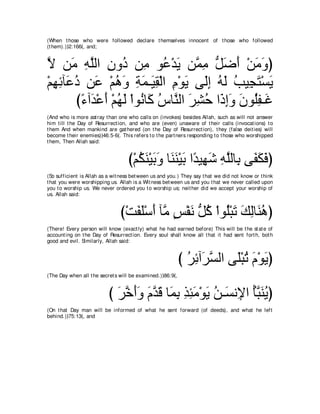 (When those who were followed declare themselves innocent of those who followed
(them).)(2:166), and;
(وَمَنْ أَضَلُّ مِمَّن يَدْعُو مِن دُونِ اللَّهِ مَن لاَّ
يَسْتَجِيبُ لَهُ إِلَى يَوْمِ الْقِيَـمَةِ وَهُمْ عَن دُعَآئِهِمْ
غَـفِلُونَ وَإِذَا حُشِرَ النَّاسُ كَانُواْ لَهُمْ أَعْدَآءً)
(And who is more astray than one who calls on (invokes) besides Allah, such as will not answer
him till the Day of Resurrection, and who are (even) unaware of their calls (invocations) to
them And when mankind are gathered (on the Day of Resurrection), they (false deities) will
become their enemies)(46:5-6). This refers to the partners responding to those who worshipped
them, Then Allah said;
(فَكَفَى بِاللَّهِ شَهِيدًا بَيْنَنَا وَبَيْنَكُمْ)
(So sufficient is Allah as a witness between us and you.) They say that we did not know or think
that you were worshipping us. Allah is a Witness between us and you that we never called upon
you to worship us. We never ordered you to worship us; neither did we accept your worship of
us. Allah said:
(هُنَالِكَ تَبْلُواْ كُلُّ نَفْسٍ مَّآ أَسْلَفَتْ)
(There! Every person will know (exactly) what he had earned before) This will be the state of
accounting on the Day of Resurrection. Every soul shall know all that it had sent forth, both
good and evil. Similarly, Allah said:
(يَوْمَ تُبْلَى السَّرَآئِرُ )
(The Day when all the secrets will be examined.)(86:9),
(يُنَبَّأُ الإِنسَـنُ يَوْمَئِذِ بِمَا قَدَّمَ وَأَخَّرَ )
(On that Day man will be informed of what he sent forward (of deeds), and what he left
behind.)(75:13), and